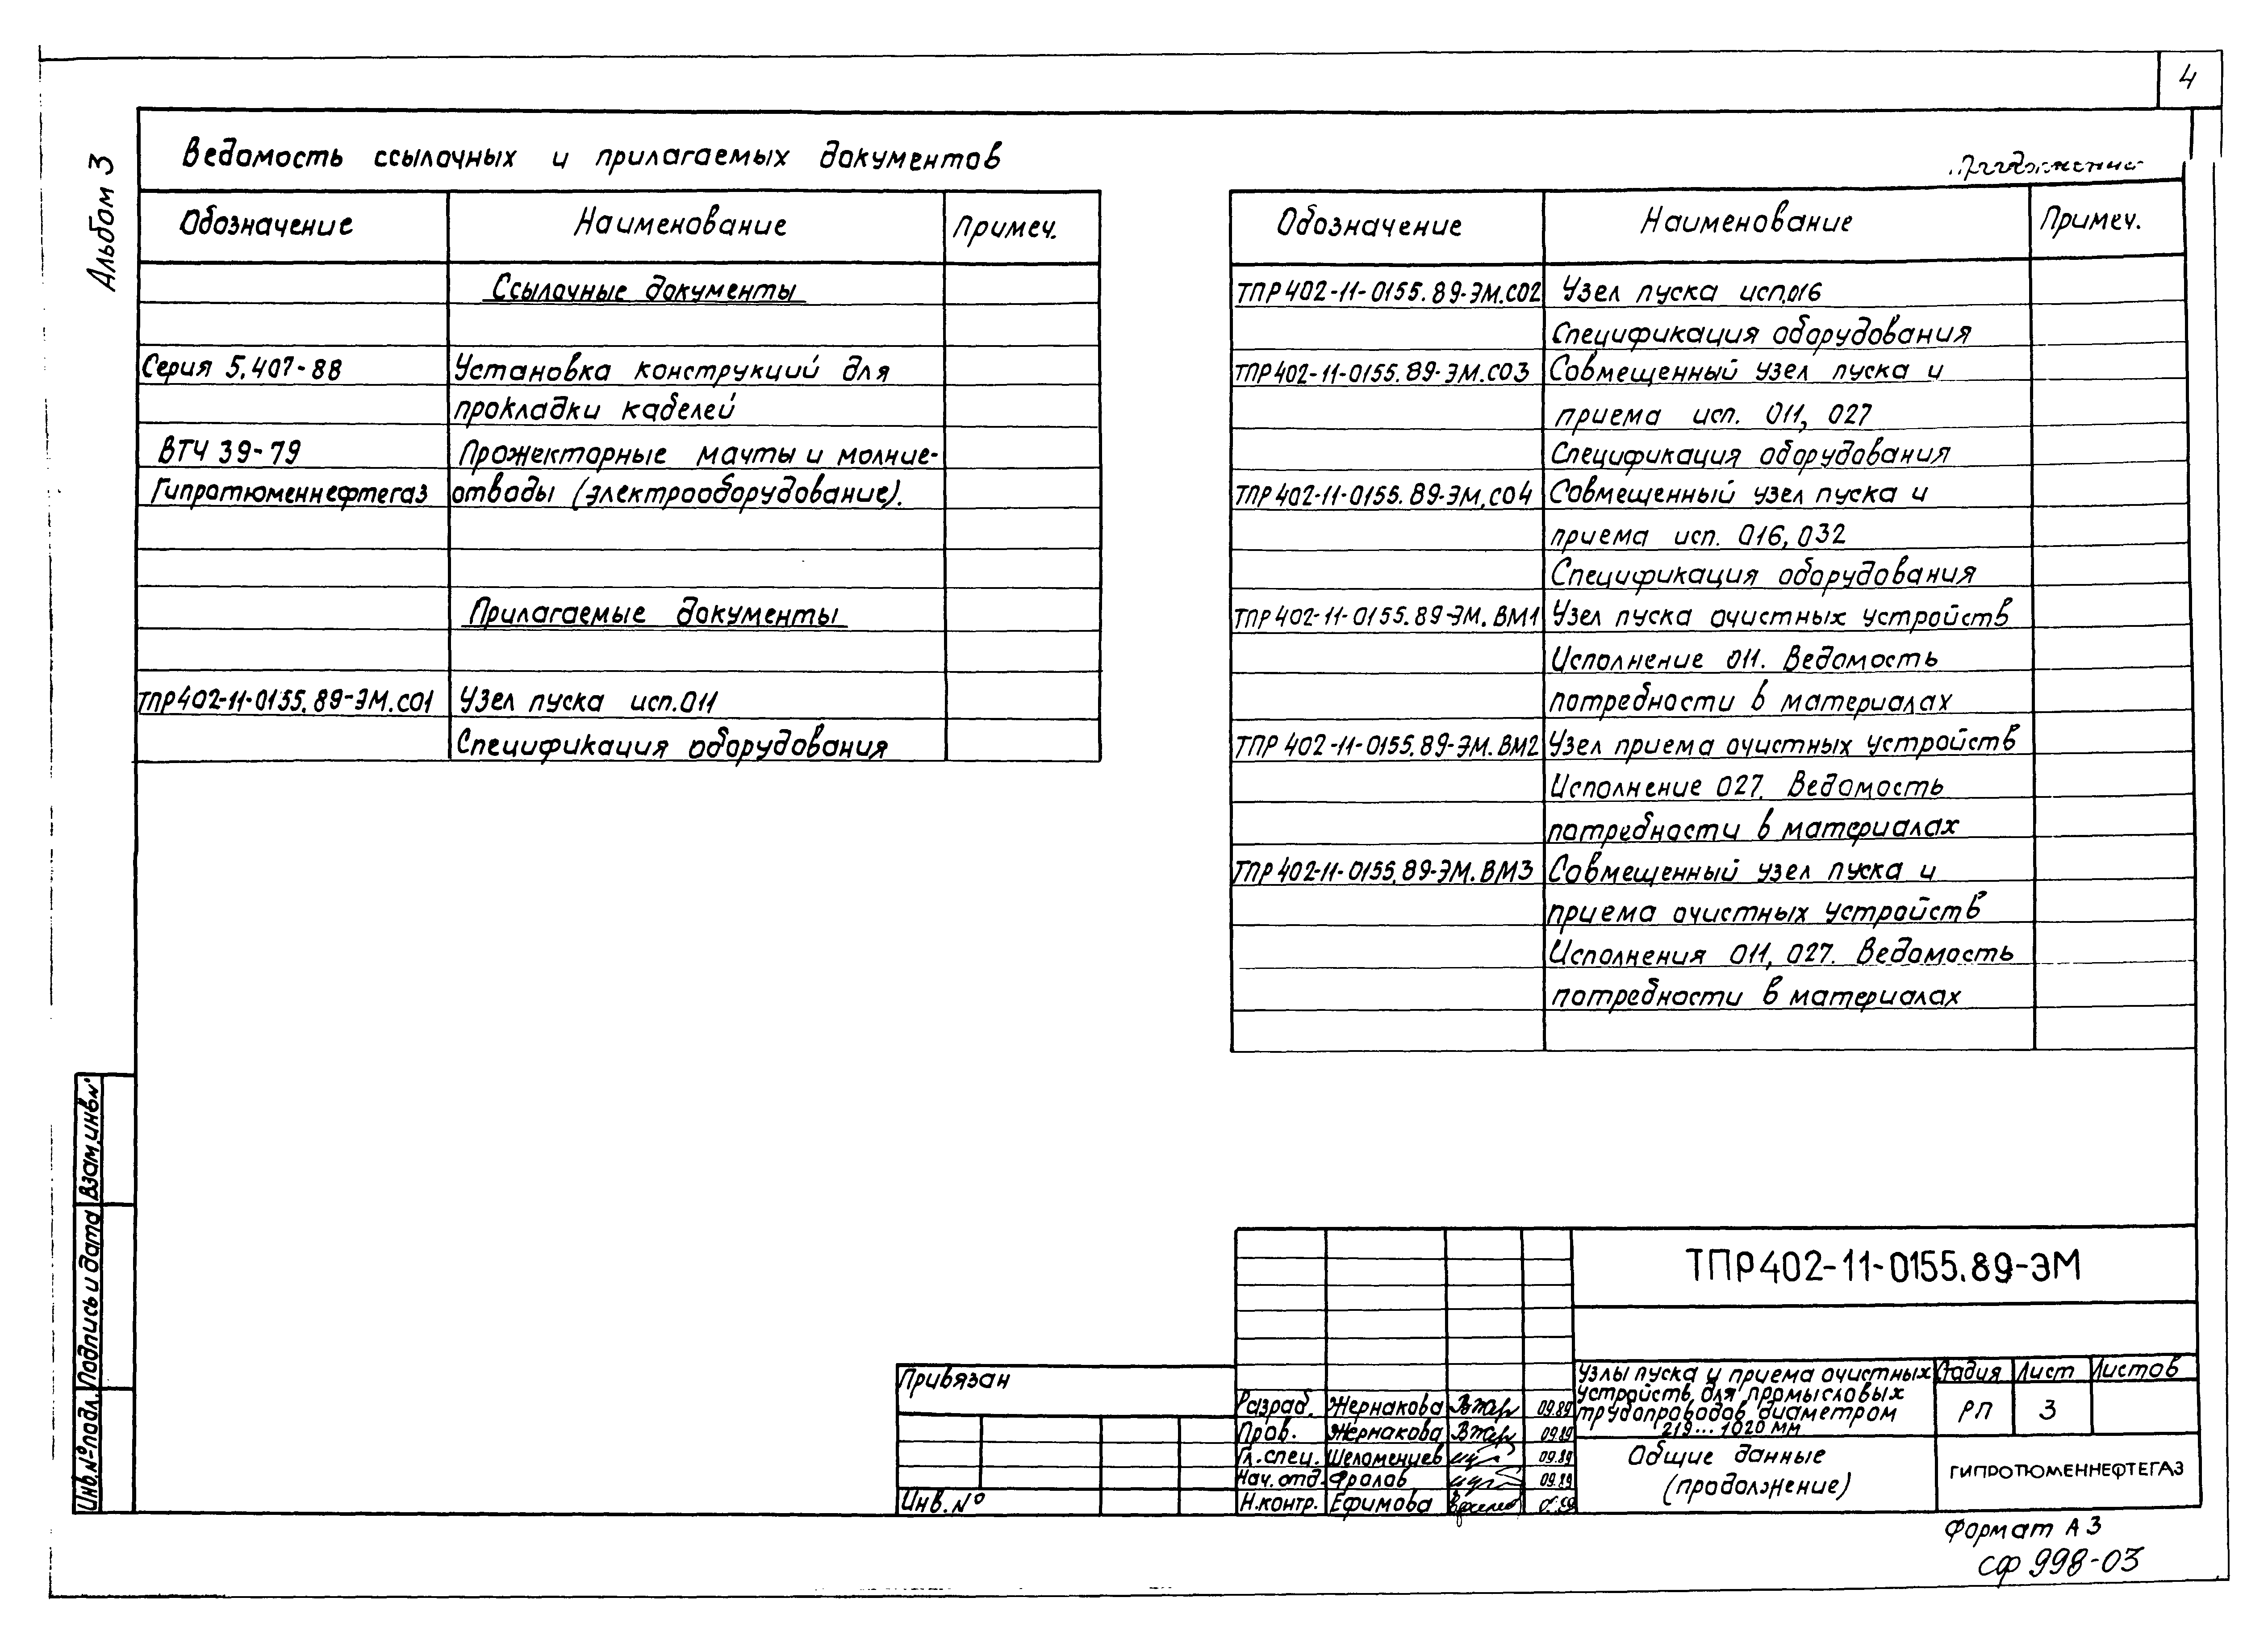 4
Альбом 3
Ведомость ссылочных и прилагаемых документов
Обозначение Наименование Примеч.
Ссылочные документы
Серия 5.407-88 Установка конструкций для
прокладки кабелей
ВТЧ 39-79 Прожекторные мачты и молние-
Гипротюменнефтегаз отводы (электрооборудование).
Прилагаемые документы
ТПР402-11-0155.89-ЭМ.СО1 Узел пуска исп.011
Спецификация оборудования
Продолжение
Обозначение Наименование Примеч.
ТПР402-11-0155.89-ЭМ.СО2 Узел пуска исп.016
Спецификация оборудования
ТПР402-11-0155.89-ЭМ.СО3 Совмещенный узел пуска и
приема исп. 011, 027
Спецификация оборудования
ТПР402-11-0155.89-ЭМ.СО4 Совмещенный узел пуска и
приема исп. 016, 032
Спецификация оборудования
ТПР402-11-0155.89-ЭМ.ВМ1 Узел пуска очистных устройств
Исполнение 011. Ведомость
потребности в материалах
ТПР402-11-0155.89-ЭМ.ВМ2 Узел приема очистных устройств
Исполнение 027. Ведомость
потребности в материалах
ТПР402-11-0155.89-ЭМ.ВМ3 Совмещенный узел пуска и
приема очистных устройств
Исполнения 011, 027. Ведомость
потребности в материалах
Взам.инв.№
Подпись и дата
Инв.№подл.
Привязан
Инв.№
ТПР402-11-0155.89-ЭМ
Разраб. Жернакова 09.89
Пров. Жернакова 09.89
Гл.спец. Шеломенцев 09.89
Нач.отд Фролов 09.89
Н.контр. Ефимова
Узлы пуска и приема очистных
устройств для промысловых
трубопроводов диаметром
219...1020 мм
Стадия Лист Листов
РП 3
Общие данные
(продолжение)
ГИПРОТЮМЕННЕФТЕГАЗ
Формат А3
СФ 998-03